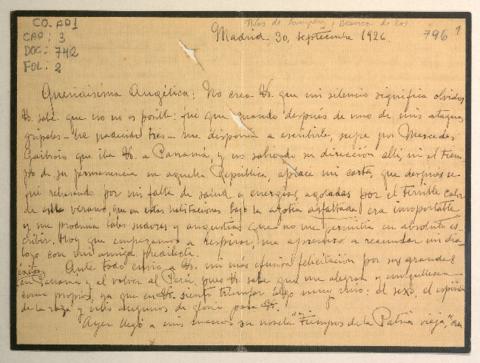 CO.AD1
CAO: 3
DOC: 742
FOL: 2
796 1
Madrid, 30, septiembre 1926
Queridísima Angélica: No crea Vd. que mi silencio significa olvido;
Vd. sabe que no es posible: fue que cuando después de uno de mis ataques
gripales me disponía a escribirle, supe por Mercedes
Gaibrois que iba Vd. a Panamá, y no sabiendo su dirección allí, ni el tiem-
po de su permanencia en aquella República, aplacé mi carta, que después se-
guí retrasando por mi falta de salud y energías, agotadas por el terrible calor
de este verano, que en estas habitaciones bajo la azotea asfaltada era insoportable
y me producía tales mareos y angustias que no me permitía en absoluto es-
cribir. Hoy que empezamos a respirar, me apresuro a reanudar mi diá-
logo con mi amiga predilecta.
Ante todo envío a Vd. mi más efusiva felicitación por sus grandes
éxitos en Panamá y al volver al Perú, pues Vd. sabe que me alegran y enorgullecen
como propios, ya que en Vd. siento triunfar algo muy mío: el sexo, el espíritu
de la raza y mis augurios de gloria para Vd.
Ayer llegó a mis manos su novela "Tiempos de la Patria vieja",